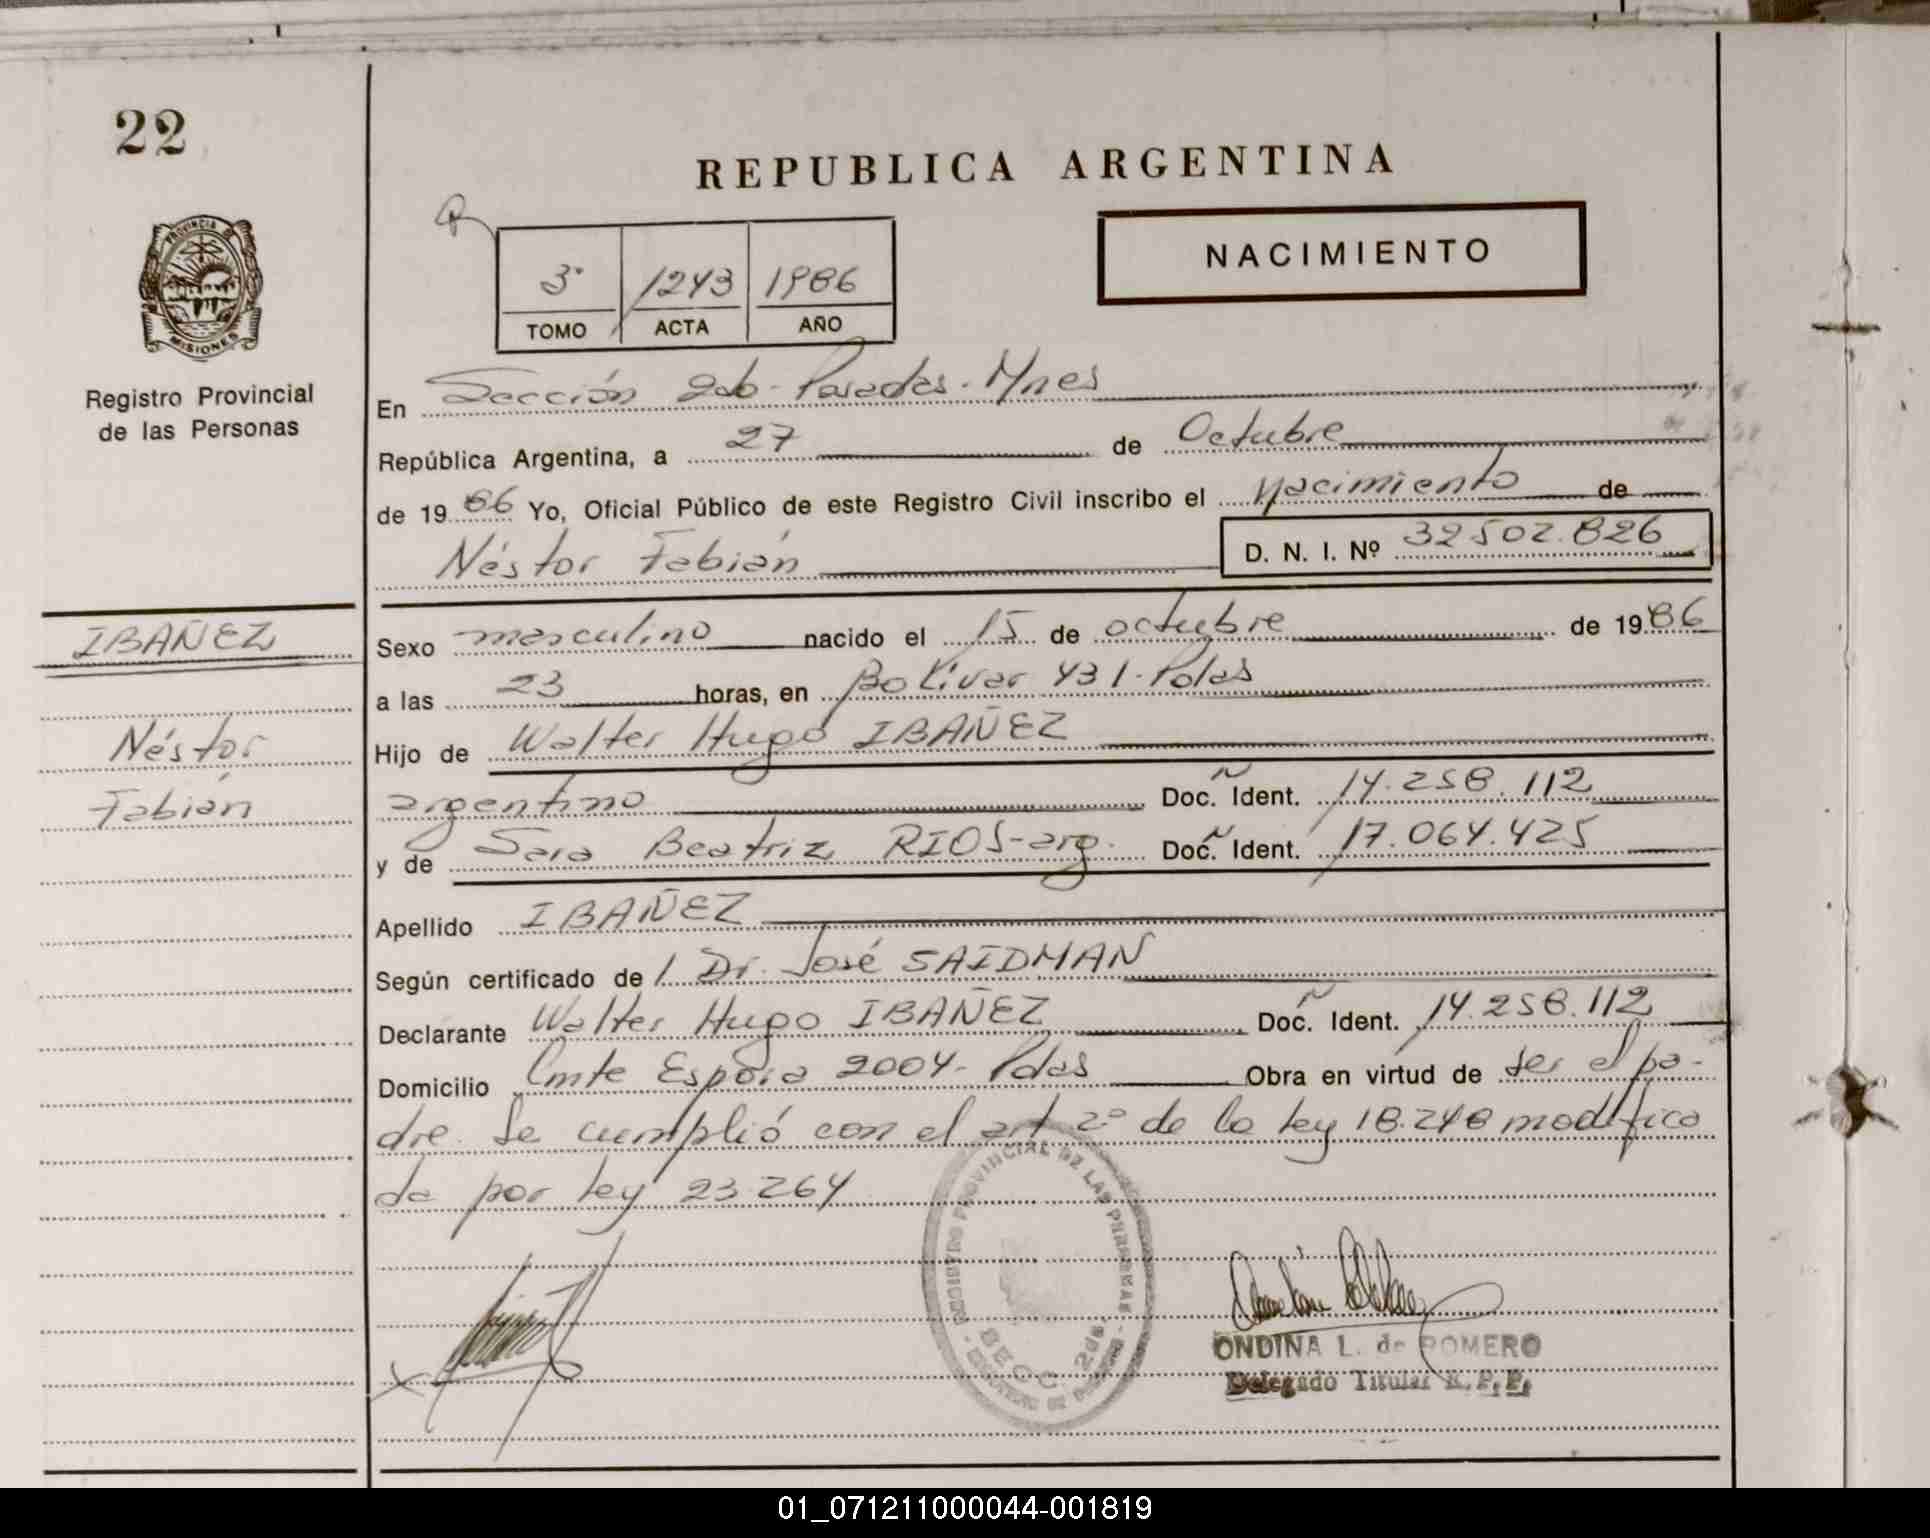 22
REPUBLICA ARGENTINA
NACIMIENTO
3º 1243 1986
TOMO ACTA AÑO
PROVINCIA DE
MISIONES
Registro Provincial
de las Personas
En Sección 2da- Posadas- Mnes
República Argentina, a 27 de Octubre
de 1986 Yo, Oficial Público de este Registro Civil inscribo el Nacimiento de
Néstor Fabián D. N. I. Nº 32502.826
IBAÑEZ
Néstor
Fabián
Sexo masculino nacido el 15 de octubre de 1986
a las 23 horas, en Bolívar 431- Pdas
Hijo de Walter Hugo IBAÑEZ
argentino Doc. Ident. 14.258.112
y de Sara Beatriz RIOS-arg. Doc. Ident. 17.064.425
Apellido IBAÑEZ
Según certificado de Dr. José SAIDMAN
Declarante Walter Hugo IBAÑEZ Doc. Ident. 14.258.112
Domicilio Cmte Espora 2004- Pdas Obra en virtud de ser el pa-
dre. Se cumplió con el art 2º de la ley 18.248 modifica
da por ley 23.264
REGISTRO PROVINCIAL DE LAS PERSONAS
SECC. 2da.
ONDINA L. de ROMERO
Delegado Titular R. P. P.
01_071211000044-001819